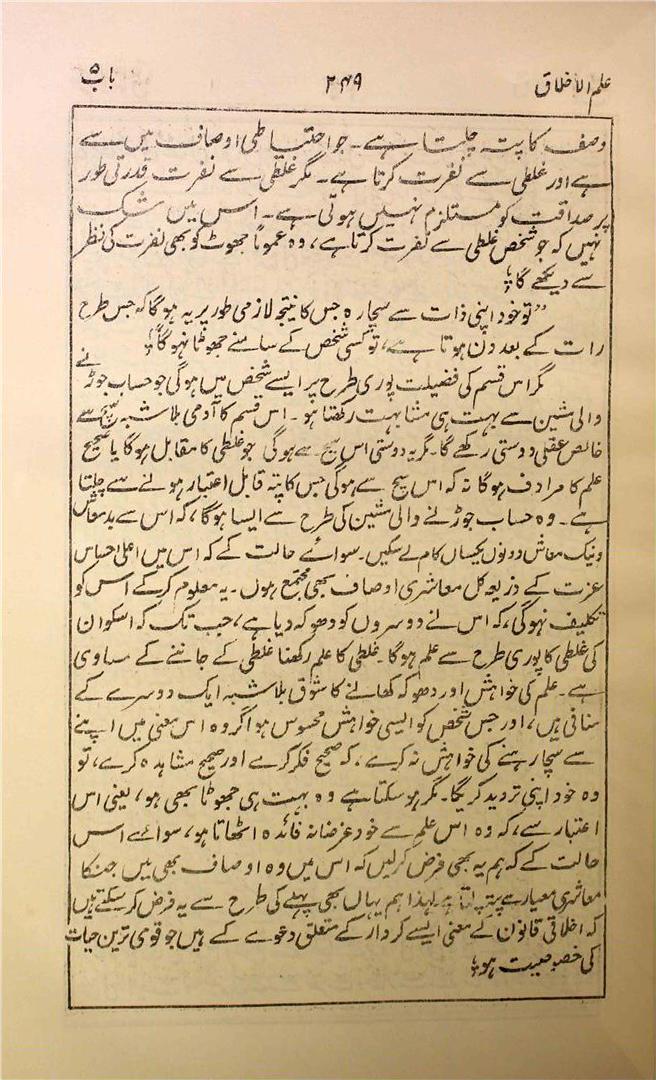 علم الاخلاق ۲۴۹ باب ۵
وصف کا پتہ چلتا ہے۔ جو احتیاطی اوصاف میں سے
ہے اور غلطی سے نفرت کرتا ہے۔ مگر غلطی سے نفرت قدرتی طور
پر صداقت کو مستلزم نہیں ہوتی ہے۔ اس میں شک
نہیں کہ جو شخص غلطی سے نفرت کرتا ہے، وہ عموماً جھوٹ کو بھی نفرت کی نظر
سے دیکھے گا؛
”تو خود اپنی ذات سے سچا رہ جس کا نتیجہ لازمی طور پر یہ ہوگا کہ جس طرح
رات کے بعد دن ہوتا ہے، تو کسی شخص کے سامنے جھوٹا نہ ہوگا“؛
مگر اس قسم کی فضیلت پوری طرح پر ایسے شخص میں ہوگی جو حساب جوڑنے
والی مشین سے بہت ہی مشابہت رکھتا ہو۔ اس قسم کا آدمی بلا شبہ سچ سے
خالص عقلی دوستی رکھے گا۔ مگر یہ دوستی اس سچ سے ہوگی جو غلطی کا مقابل ہوگا یا صحیح
علم کا مرادف ہوگا نہ کہ اس سچ سے ہوگی جس کا پتہ قابل اعتبار ہونے سے چلتا
ہے۔ وہ حساب جوڑنے والی مشین کی طرح سے ایسا ہوگا، کہ اس سے بدمعاش
ونیک معاش دونوں یکساں کام لے سکیں۔ سوائے حالت کے کہ اس میں اعلیٰ احساس
عزت کے ذریعہ کل معاشری اوصاف بھی مجتمع ہوں۔ یہ معلوم کرکے اس کو
تکلیف نہ ہوگی، کہ اس نے دوسروں کو دھوکہ دیا ہے، جب تک کہ اسکو ان
کی غلطی کا پوری طرح سے علم ہوگا۔ غلطی کا علم رکھنا غلطی کے جاننے کے مساوی
ہے۔ علم کی خواہش اور دھوکہ کھانے کا شوق بلا شبہ ایک دوسرے کے
منافی ہیں، اور جس شخص کو ایسی خواہش محسوس ہو اگر وہ اس معنی میں اپنے
سے سچا رہنے کی خواہش نہ کرے، کہ صحیح فکر کرے اور صحیح مشاہدہ کرے، تو
وہ خود اپنی تردید کریگا۔ مگر ہو سکتا ہے وہ بہت ہی جھوٹا بھی ہو، یعنی اس
اعتبار سے، کہ وہ اس علم سے خود غرضانہ فائدہ اٹھاتا ہو، سوائے اس
حالت کے کہ ہم یہ بھی فرض کرلیں کہ اس میں وہ اوصاف بھی ہیں جنکا
معاشری معیار سے پتہ چلتا ہے۔ لہذا ہم یہاں بھی پہلے کی طرح سے یہ فرض کر سکتے ہیں
کہ اخلاقی قانون کے معنی ایسے کردار کے متعلق دعوے کے ہیں جو قوی ترین حیات
کی خصوصیت ہو؛